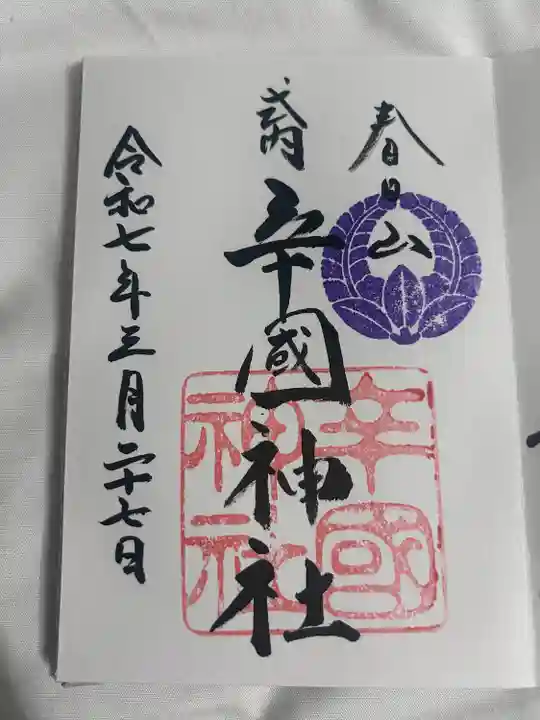 春日山
式内
辛國神社
辛國神社
令和七年三月二十七日